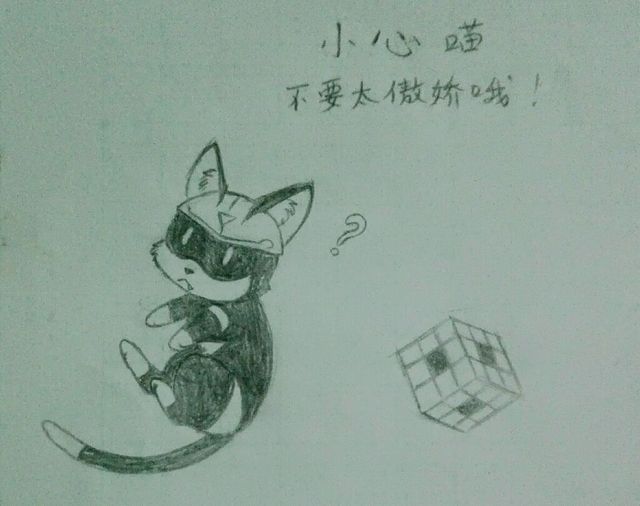 小心喵
不要太傲娇哦！
?